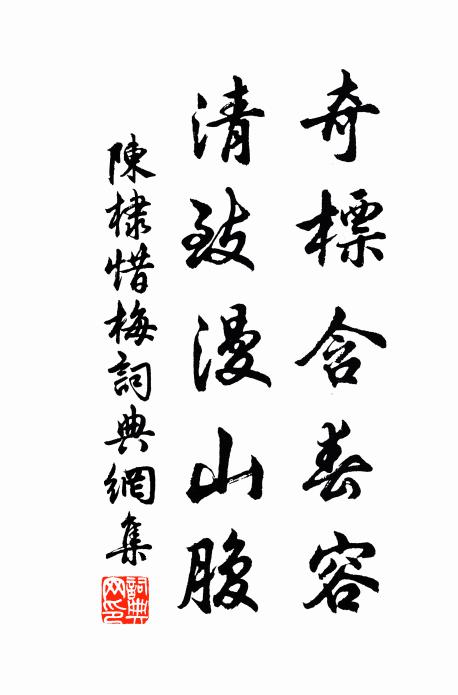 奇標含春容
清致漫山腹
陳棣惜梅詞典網集
詞典网印